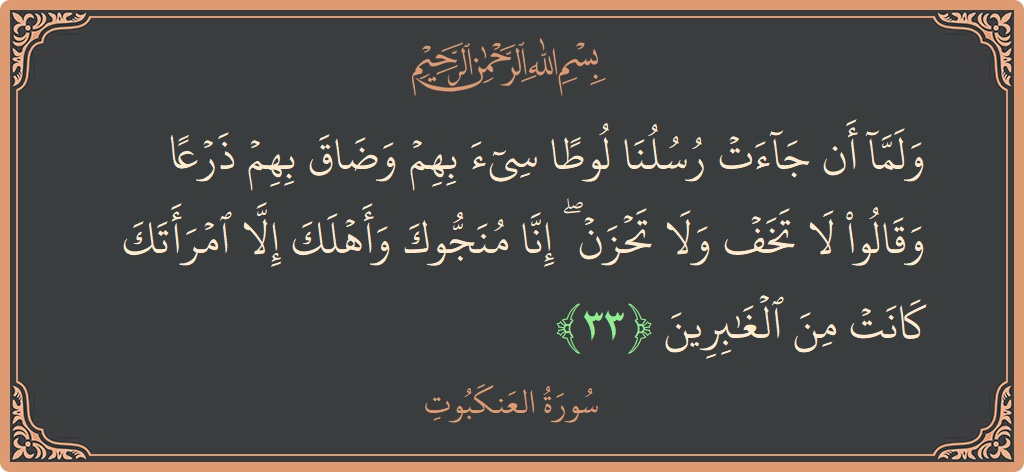 بِسْمِ اللهِ الرَّحْمٰنِ الرَّحِيْمِ
وَلَمَّآ أَن جَآءَتْ رُسُلُنَا لُوطًا سِىٓءَ بِهِمْ وَضَاقَ بِهِمْ ذَرْعًا
وَقَالُوا۟ لَا تَخَفْ وَلَا تَحْزَنْ ۖ إِنَّا مُنَجُّوكَ وَأَهْلَكَ إِلَّا ٱمْرَأَتَكَ
كَانَتْ مِنَ ٱلْغَـٰبِرِينَ ﴿٣٣﴾
سُورَةُ العَنكَبُوتِ